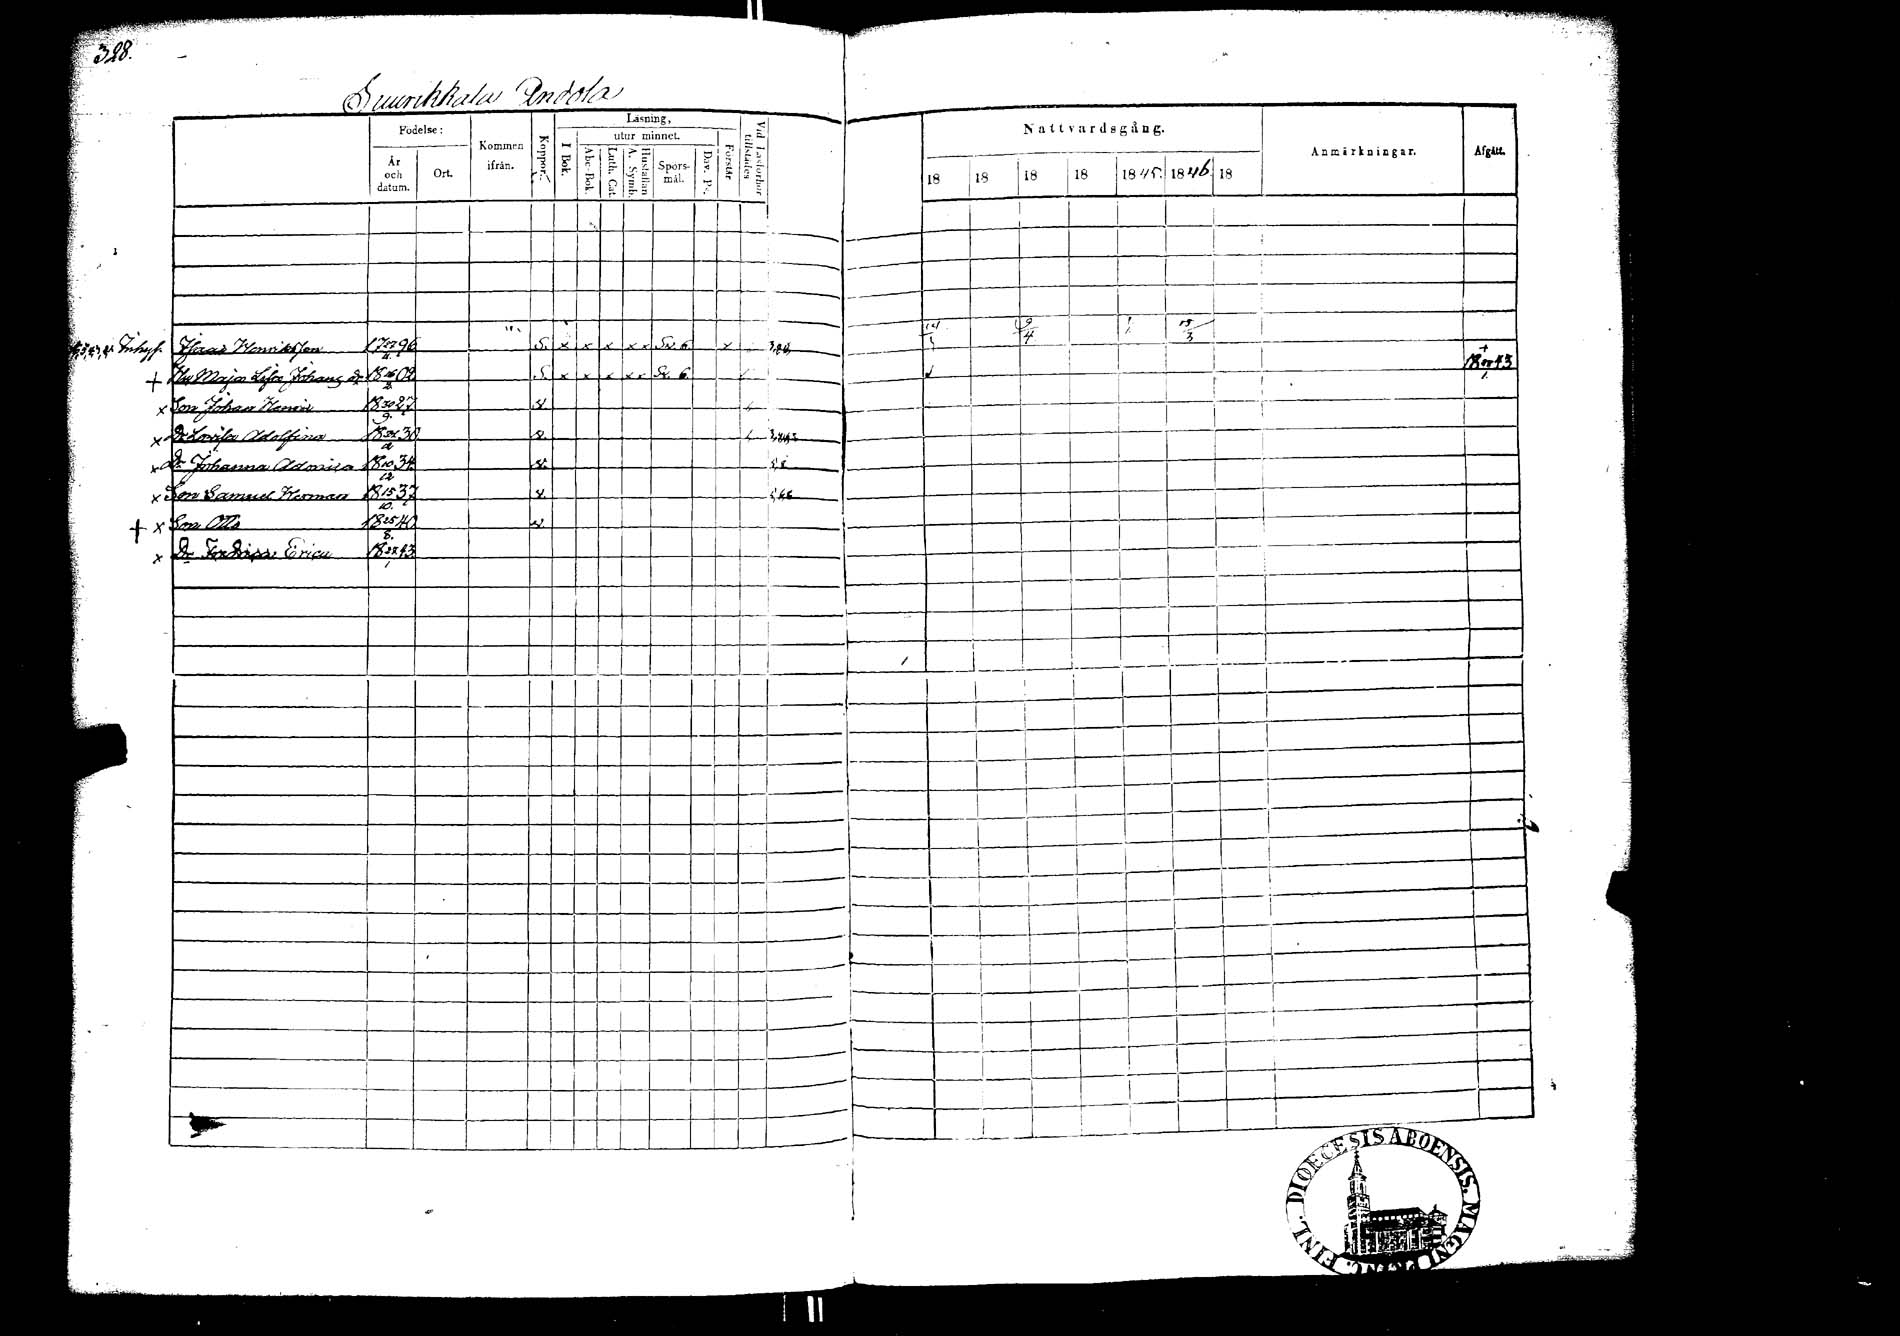 328.
Suurikkala Andola
Födelse:
År och datum.
Ort.
Kommen ifrån.
Koppor.
Läsning,
I Bok.
utur minnet.
Abc-Bok.
Luth. Cat.
A. Symb.
Hustaflan
Spörsmål.
Dav. Ps.
Förstår
Vid Läsförhör tillstädes
Nattvardsgång.
18 18 18 18 1845. 1846 18
Anmärkningar.
Afgått.
Inhys. Isaac Henriksson 1796 S. x x x x x Sv. 6. x 14 9/4 15/3
+ Hu Maja Lisa Johans dr 1802 S. x x x x x Sv. 6. + 1843
x Son Johan Henric 30/9 1827 v.
x Dr Lovisa Adolfina 1830 v.
x Dr Johanna Admira 10/12 1834 v.
x Son Samuel Herman 15/10 1837 v.
+ x Son Otto 25/8 1840 v.
x Dr Fredrica Erica 1843
DIOECESIS ABOENSIS. MAGNI FINL.